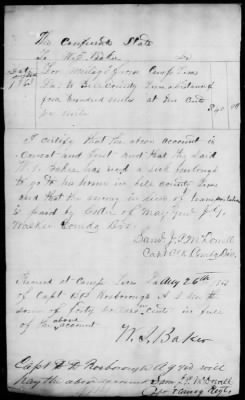 The Confederate States
To W. S. Baker Dr
For mileage from Camp
to Bell County Texas distance
four hundred miles at ten cents
per mile $40 00
I certify that the above account is
correct and just and that the said
W. S. Baker was on a sick furlough
to go to his home in Bell County Texas
and that the money in view of transportation
is paid by order of Maj Genl J. G.
Walker Comdg Div.
Saml J. P. McDowell
Capt Co Comdg
Received at Camp May 26th 186
of Capt D. D. Rosborough A Q M the
sum of forty dollars in full
of the above account
W. S. Baker
Capt D. D. Rosborough A Q M will
pay the above account Saml J. P. McDowell
Comdg Regt.